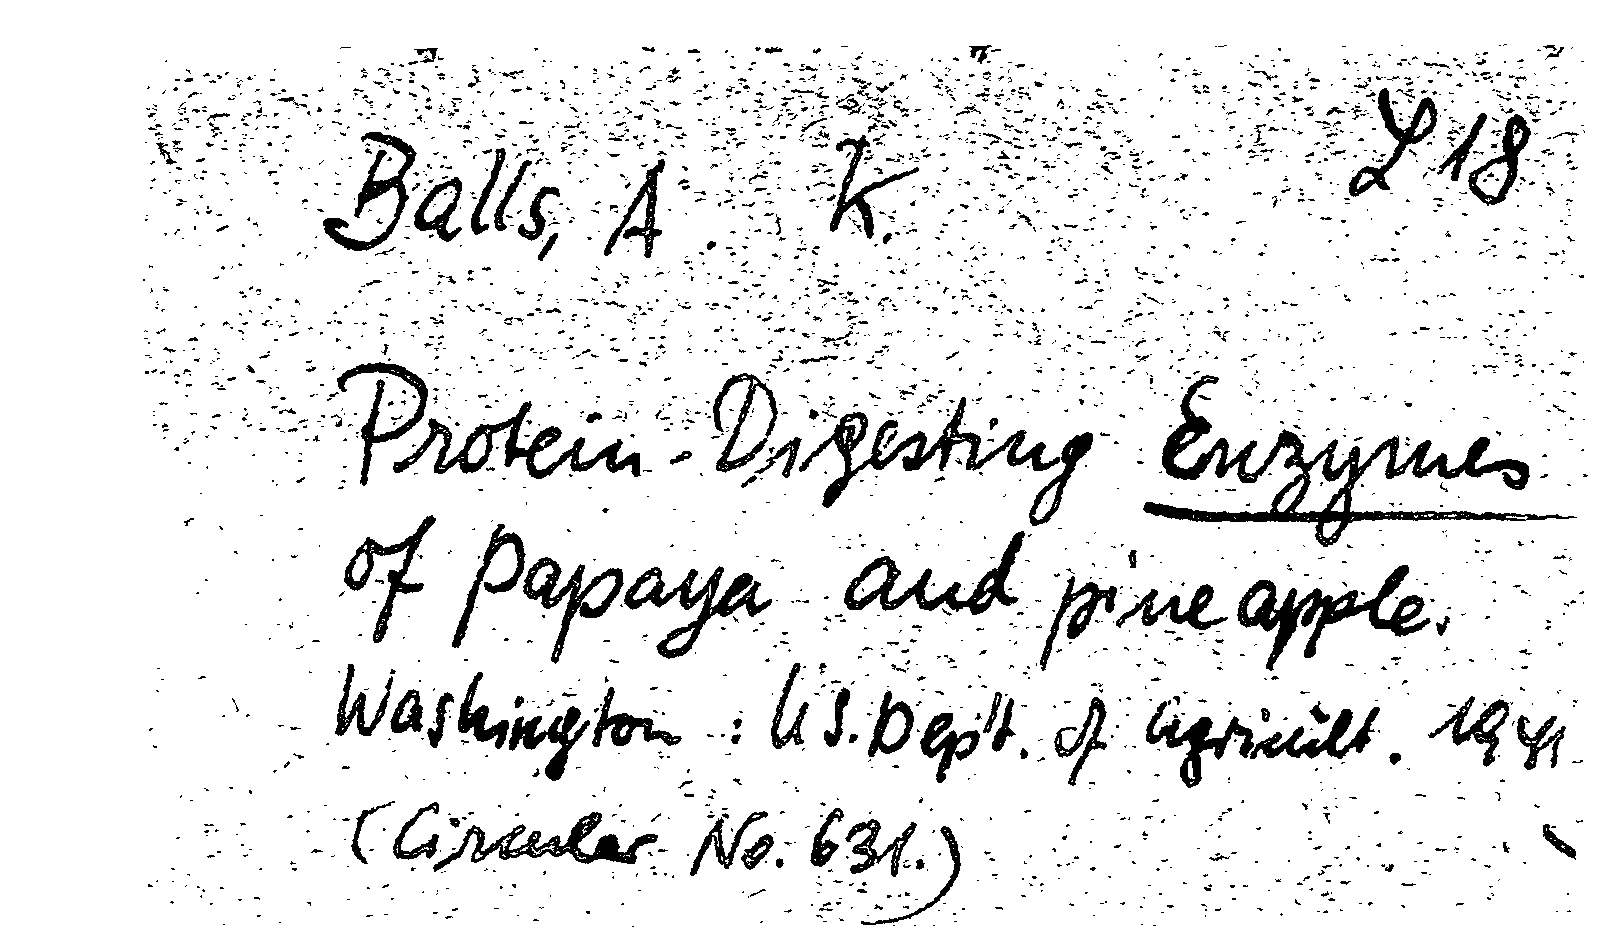 Balls, A. K. L18
Protein-Digesting Enzymes
of papaya and pineapple.
Washington : US. Dep't. of Agricult. 1941
(Circular No. 631.)